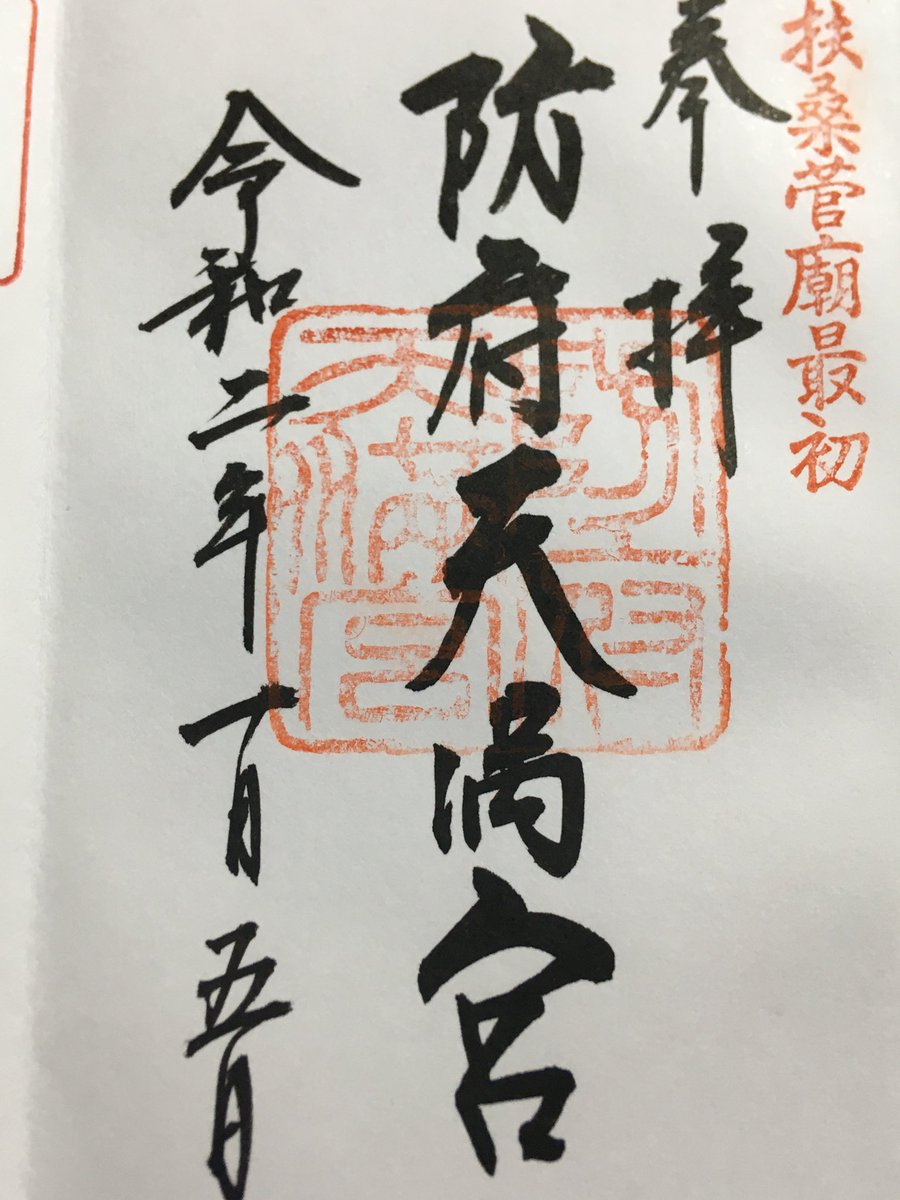 扶桑菅廟最初
奉拝
防府天満宮
令和二年十月五日